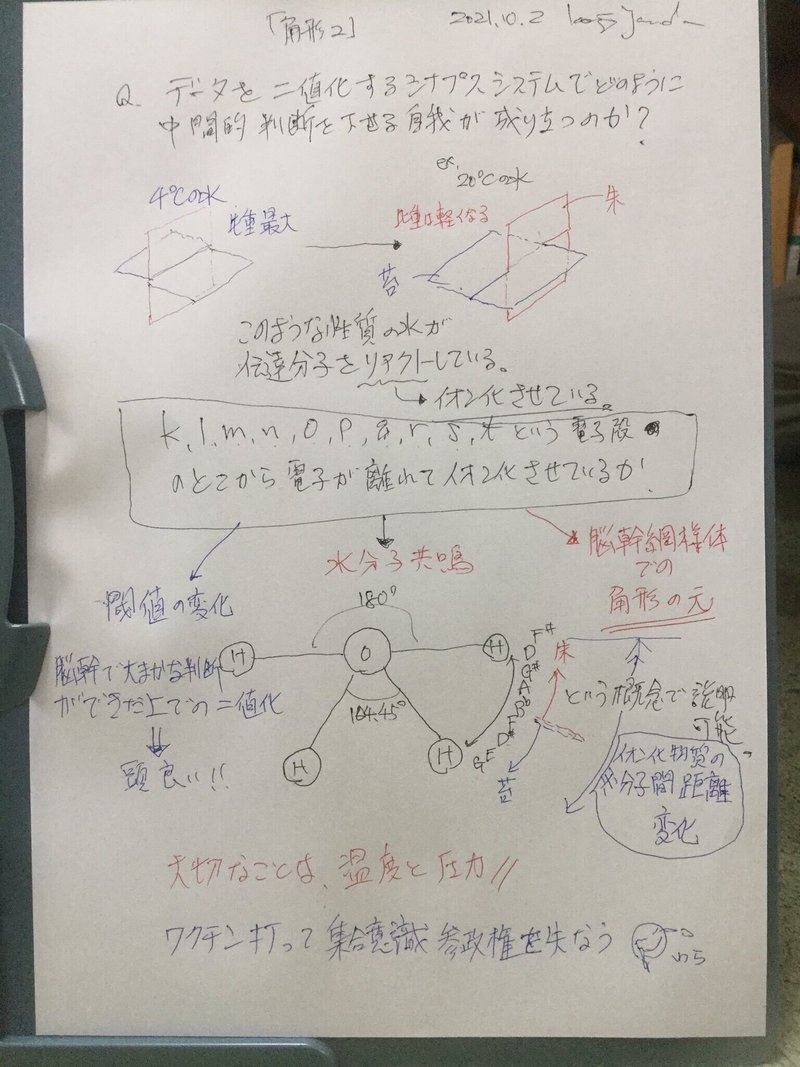 「角形2」
2021.10.2
Q. データを二値化するシナプスシステムでどのように
中間的判断を下せる自我が成り立つのか?
4℃のとき
比重最大
ex.
20℃のとき
比重は軽くなる
朱
苔
このような性質の水が
伝達分子をリアクトしている。
イオン化させている。
k, l, m, n, o, p, q, r, s, t という電子殻
のどこから電子が離れてイオン化させているか
閾値の変化
水分子共鳴
脳幹網様体
での
角形の元
脳幹で大まかな判断
ができた上での二値化
頭良い!!
180°
H
O
H
104.45°
H
H
朱
苔
という概念で説明
可能
イオン化物質の
分子間距離
変化
大切なことは、温度と圧力//
ワクチン打って集合意識参政権を失なう
わら